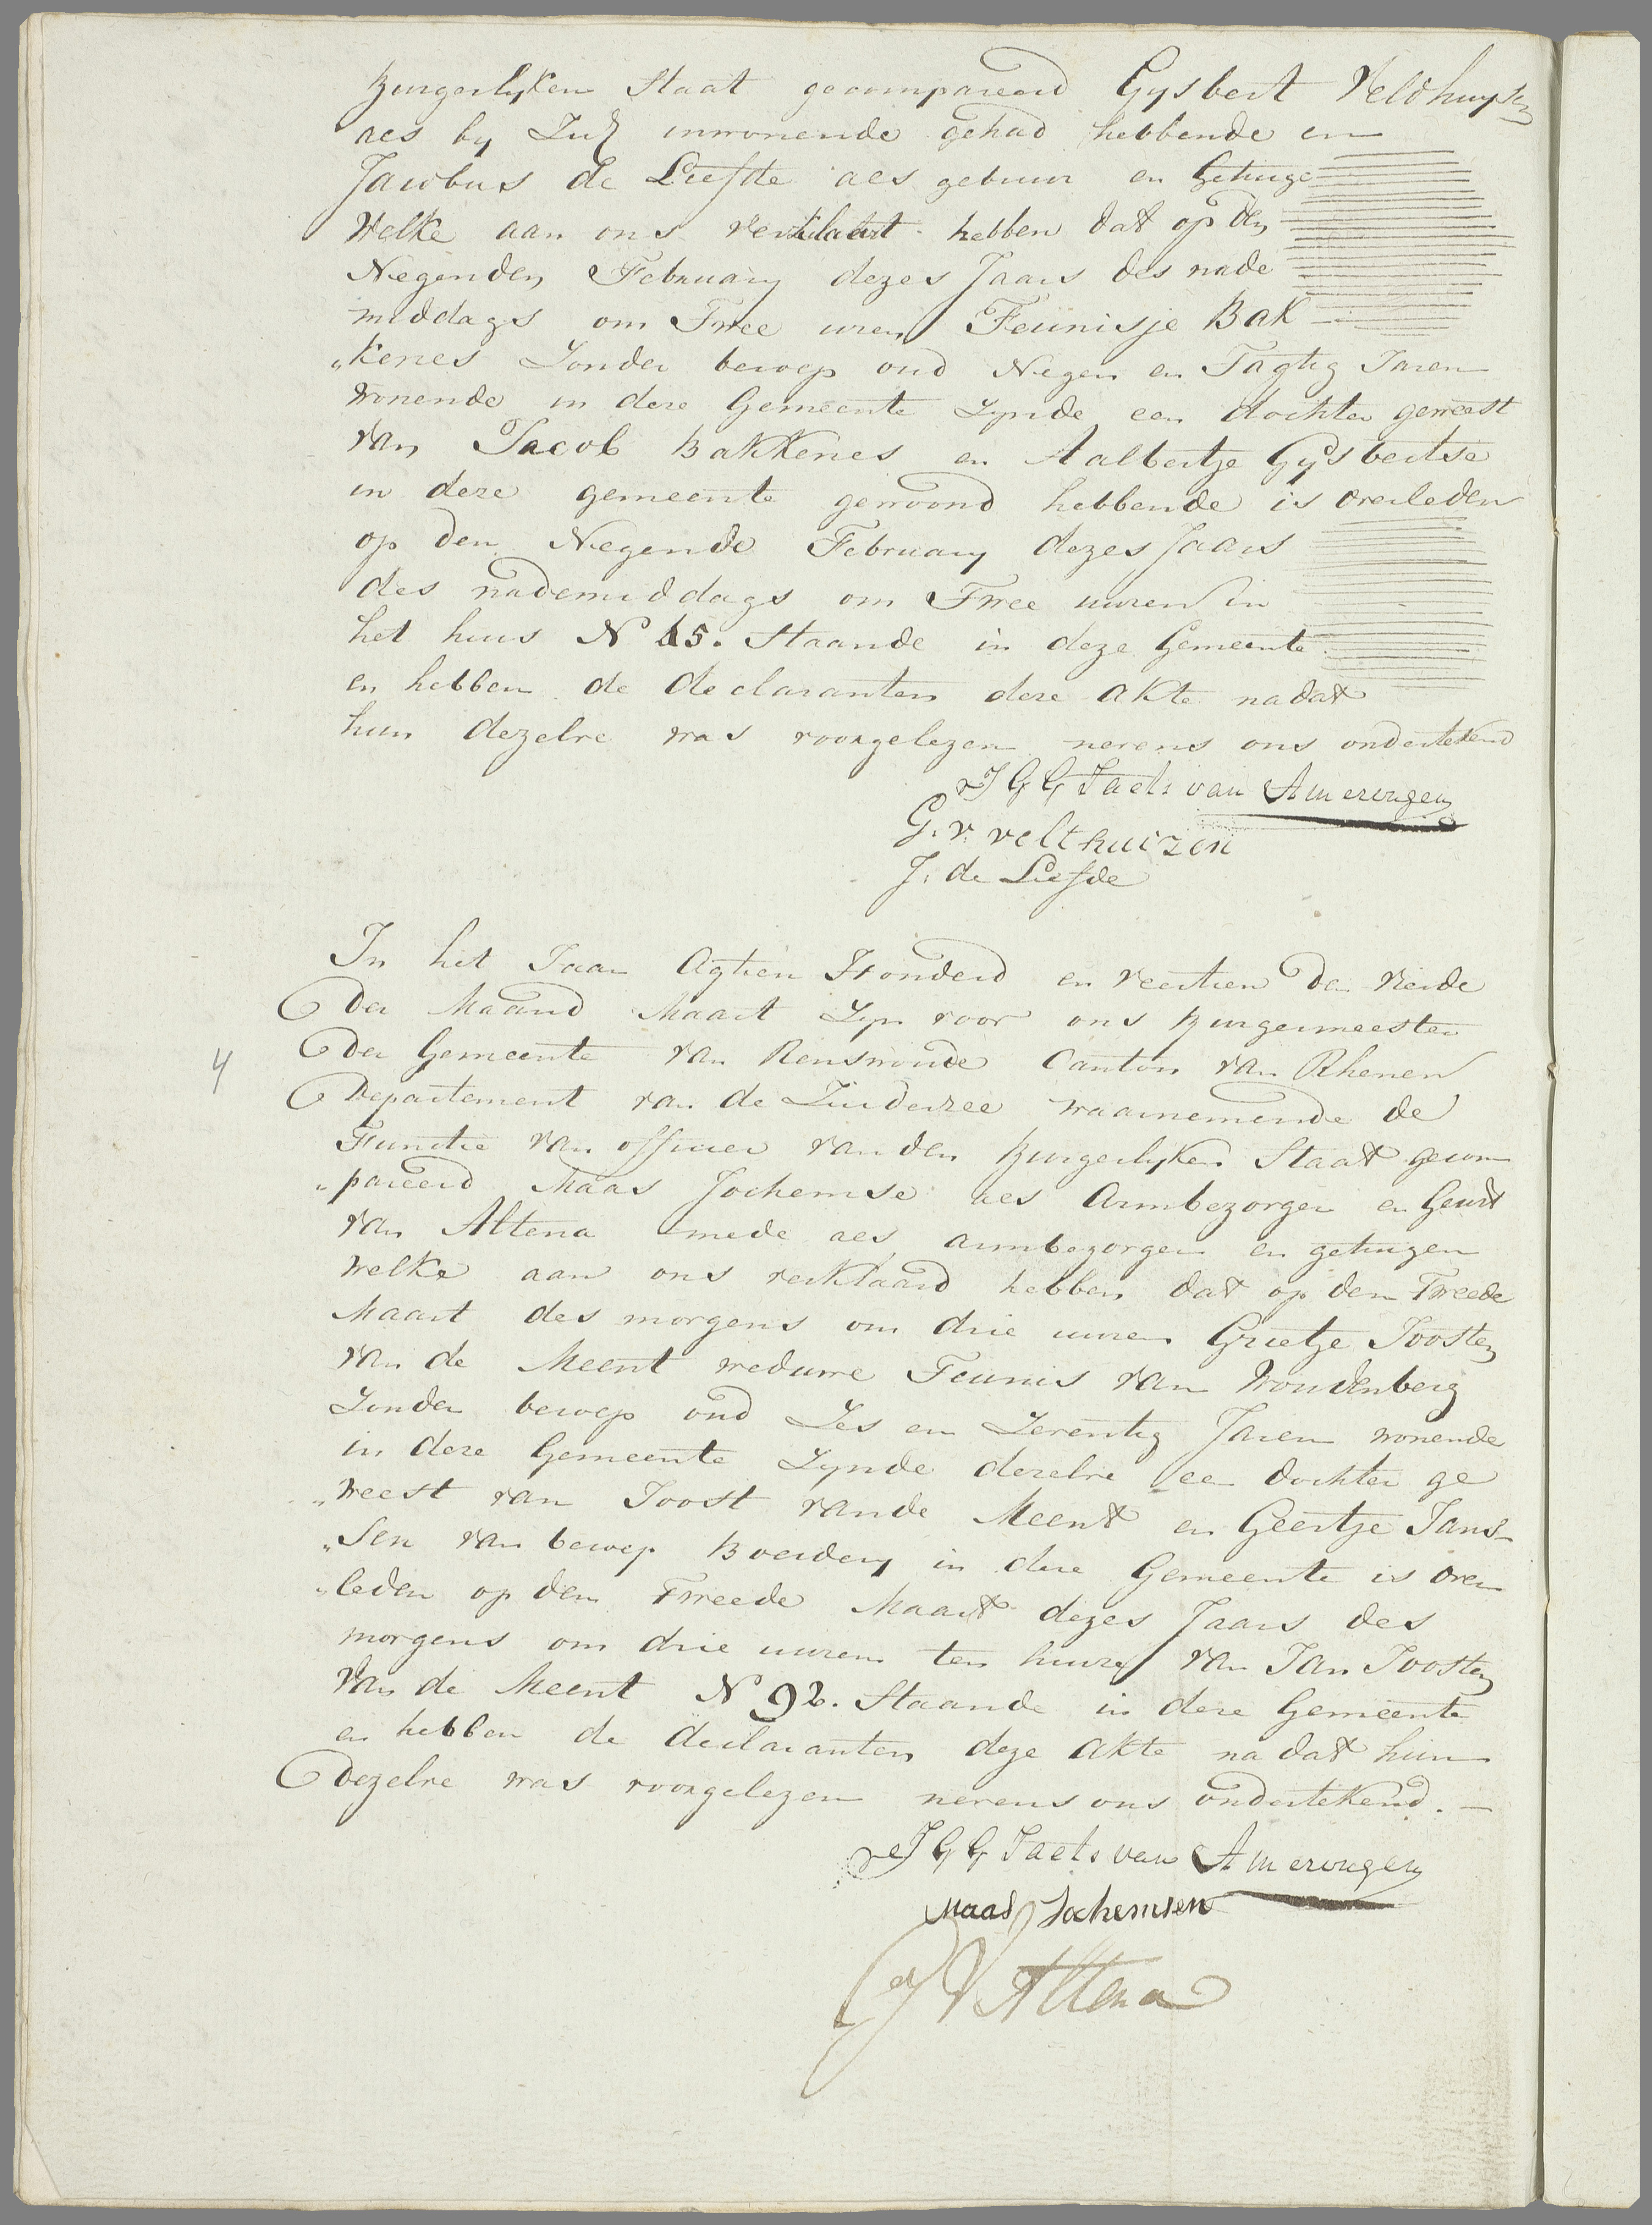 Burgerlyken Staat gecompareerd Gysbert Veldhuysen
aes by Zig inwonende gehad hebbende en
Jacobus de Liefde aes gebuur en Getuige
Welke aan ons verklaart hebben dat op den
Negenden February dezes Jaars des nade
middags om Twee uren Teunisje Bak
„kenes Zonder beroep oud Negen en Tagtig Jaren
wonende in deze Gemeente Zynde een dochter geweest
van Jacob Bakkenes en Aalbertje Gysbertse
in deze gemeente gewoond hebbende is overleden
op den Negende February dezes Jaars
des nademiddags om Twee uuren in
het huis N 45. Staande in deze Gemeente
en hebben de declaranten deze akte nadat
hun dezelve was voorgelezen nevens ons ondertekend
J G G Taets van Amerongen
G. v. velthuizen
J. de Liefde
In het Jaar Agtien Honderd en veertien den vierde
der Maand Maart Zyn voor ons Burgermeester
4
der Gemeente van Renswoude Canton van Rhenen
Departement van de Zuiderzee waarnemende de
Functie van officier van den Burgerlyken Staat gecom
„pareerd Maas Jochemse aes Armbezorger en Geurt
van Altena mede aes armbezorger en getuigen
welke aan ons verklaard hebben dat op den Tweede
Maart des morgens om drie uuren Grietje Joosten
van de Meent weduwe Teunis van Woudenberg
Zonder beroep oud Zes en Zeventig Jaren wonende
in deze Gemeente Zynde dezelve een dochter ge
„weest van Joost vande Meent en Geertje Jans-
„sen van beroep Boerdery in deze Gemeente is over
„leden op den Tweede Maart dezes Jaars des
morgens om drie uuren ten huize van Jan Joosten
Van de Meent N 92. Staande in deze Gemeente
en hebben de declaranten deze akte nadat hun
dezelve was voorgelezen nevens ons ondertekend. —
J G G Taets van Amerongen
Maas Jochemsen
G V Altena